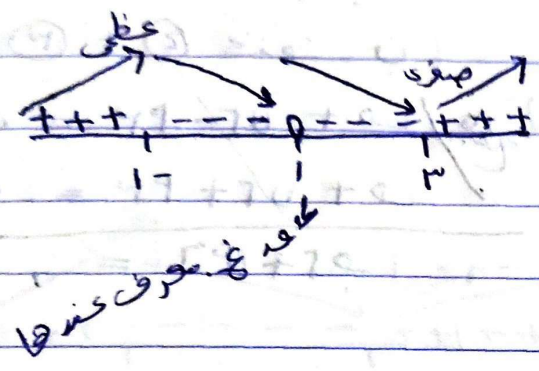 عظمى
صغرى
+ + + - - - ० - - - + + +
١- ١ ٣
غ. معرف عندها